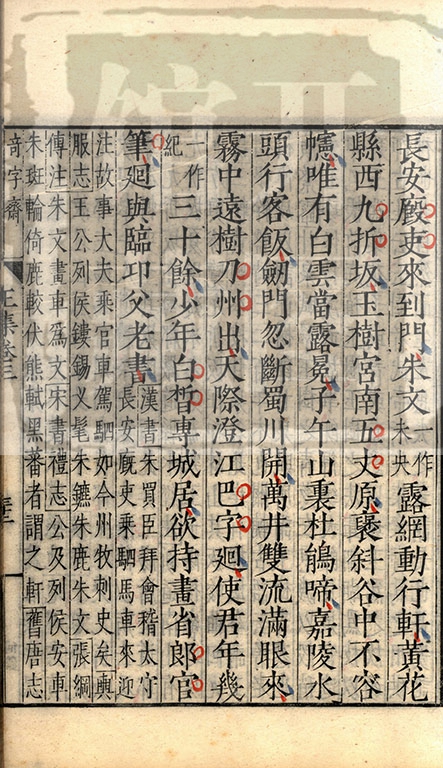 長安廄吏來到門朱文一作未央露網動行軒黃花
縣西九折坂玉樹宮南五丈原褒斜谷中不容
幰唯有白雲當露冕子午山裏杜鵑啼嘉陵水
頭行客飯劒門忽斷蜀川開萬井雙流滿眼來
霧中遠樹刀州出天際澄江巴字迴使君年幾
一作紀三十餘少年白皙專城居欲持畫省郎官
筆迴與臨邛父老書漢書朱買臣拜會稽太守長安廄吏乘駟馬車來迎
注故事大夫乘官車駕駟如今州牧刺史矣輿
服志王公列侯鏤錫义髦朱鑣朱鹿朱文張綱
傅注朱文畫車爲文宋書禮志公及列侯安車
朱斑輪倚鹿較伏熊軾黑蕃者謂之軒舊唐志
竒字齋
王集卷三